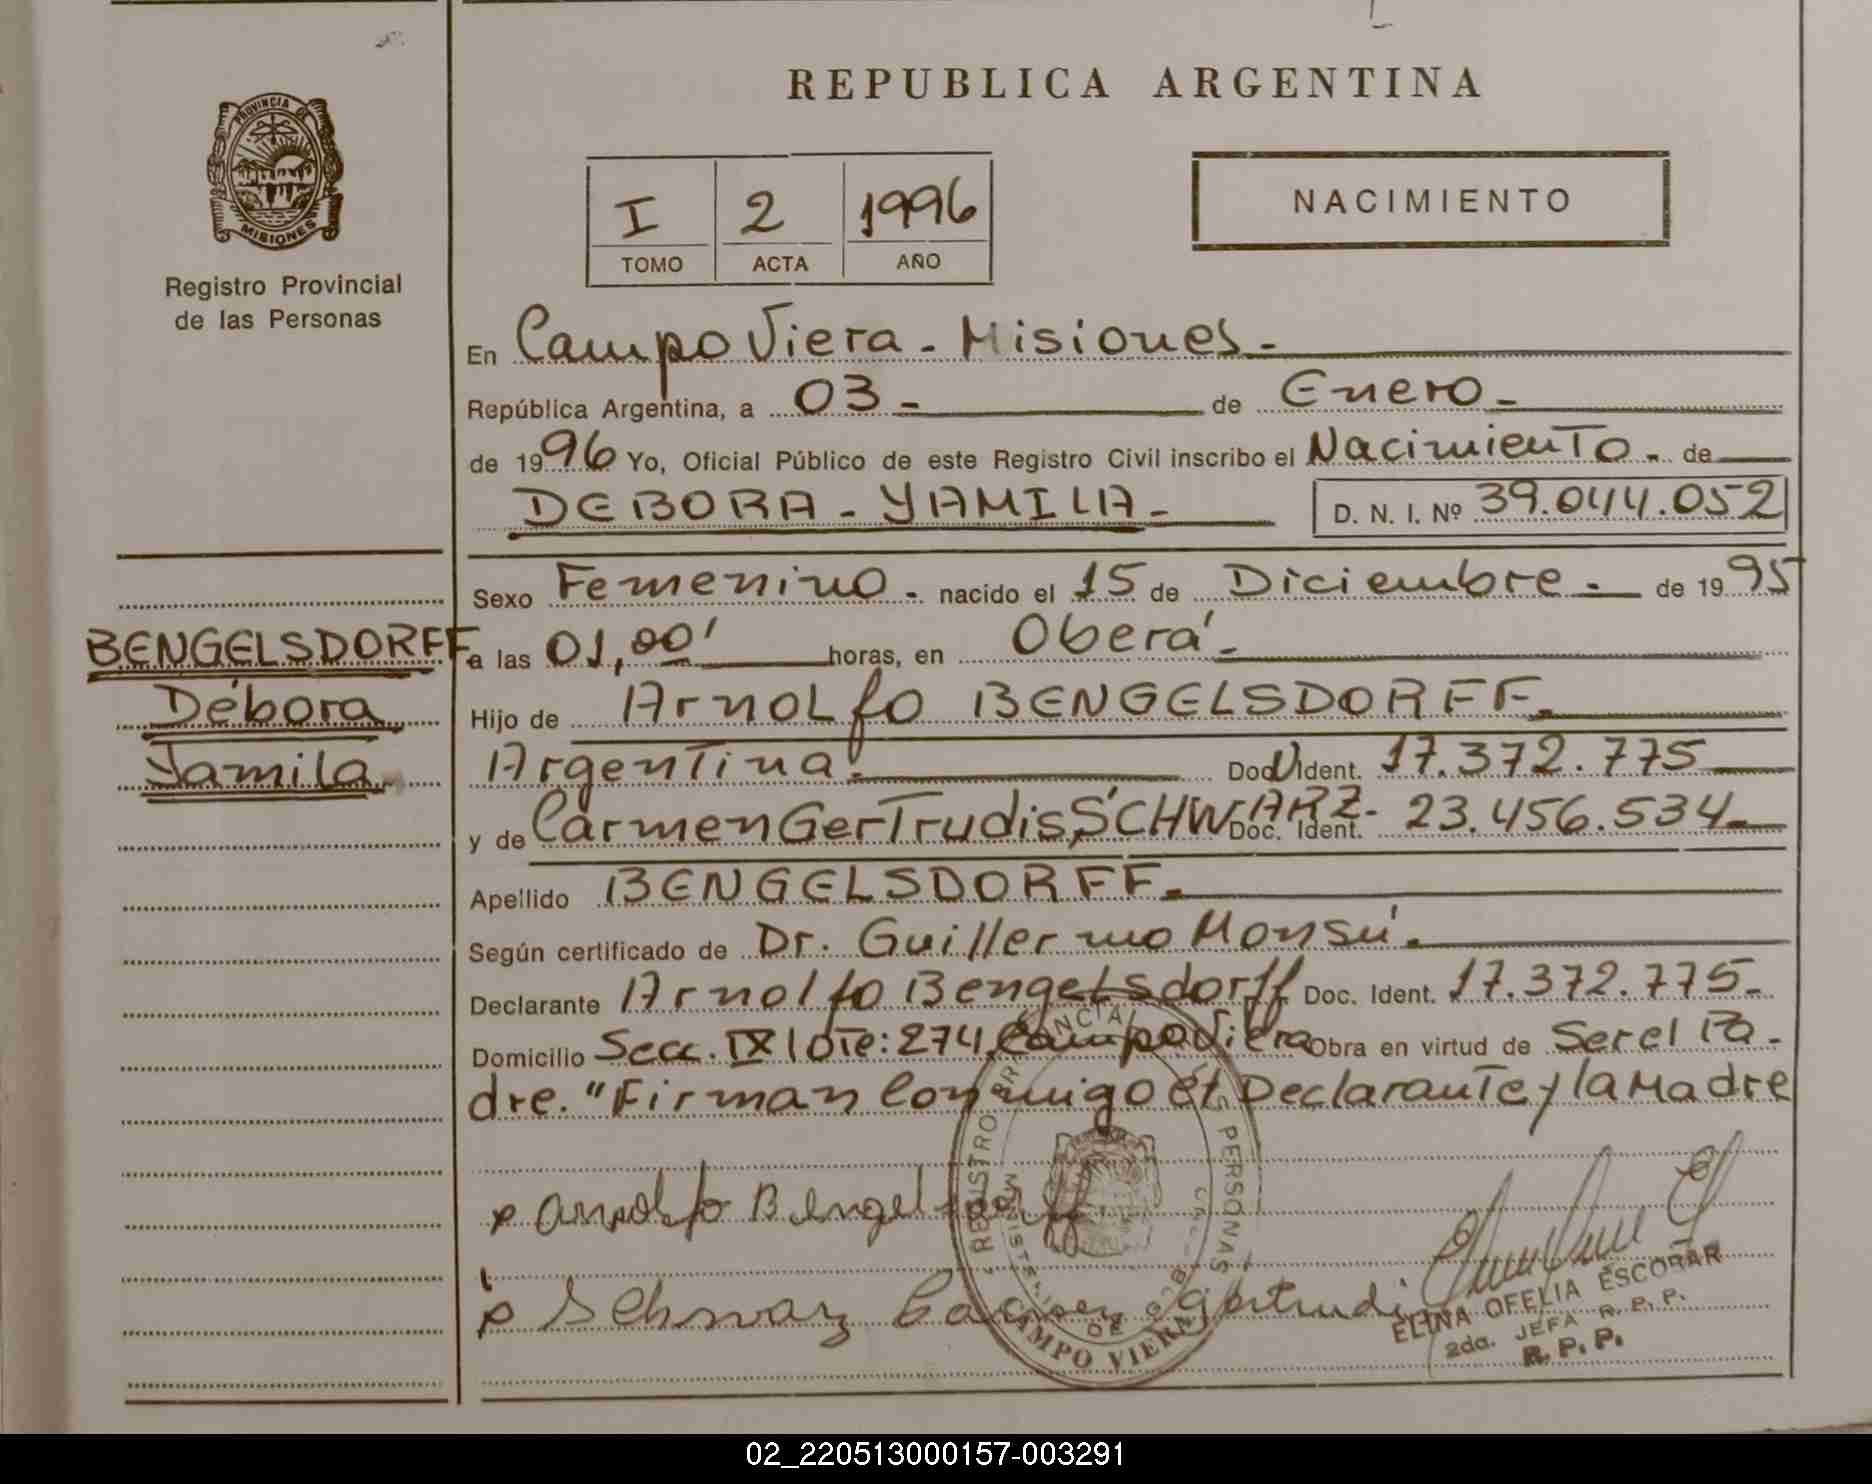 REPUBLICA ARGENTINA
PROVINCIA DE
MISIONES
Registro Provincial
de las Personas
I 2 1996
TOMO ACTA AÑO
NACIMIENTO
En Campo Viera - Misiones -
República Argentina, a 03 - de Enero -
de 1996 Yo, Oficial Público de este Registro Civil inscribo el Nacimiento - de
DEBORA - YAMILA - D. N. I. Nº 39.044.052
Sexo Femenino - nacido el 15 de Diciembre - de 1995
BENGELSDORFF
Débora
Yamila
a las 01,00' horas, en Oberá -
Hijo de Arnolfo BENGELSDORFF -
Argentina - Doc. Ident. 17.372.775
y de Carmen Gertrudis SCHWARZ - Doc. Ident. 23.456.534 -
Apellido BENGELSDORFF -
Según certificado de Dr. Guillermo Monsú -
Declarante Arnolfo Bengelsdorff Doc. Ident. 17.372.775 -
Domicilio Secc. IX lote: 274 Campo Viera Obra en virtud de Ser el Pa-
dre. "Firman Conmigo el Declarante y la Madre
Arnolfo Bengelsdorff
Schwaz Carmen Gertrudi
REGISTRO PERSONAS
CAMPO VIERA
ELINA OFELIA ESCOBAR
2da. JEFA R. P. P.
R. P. P.
02_220513000157-003291